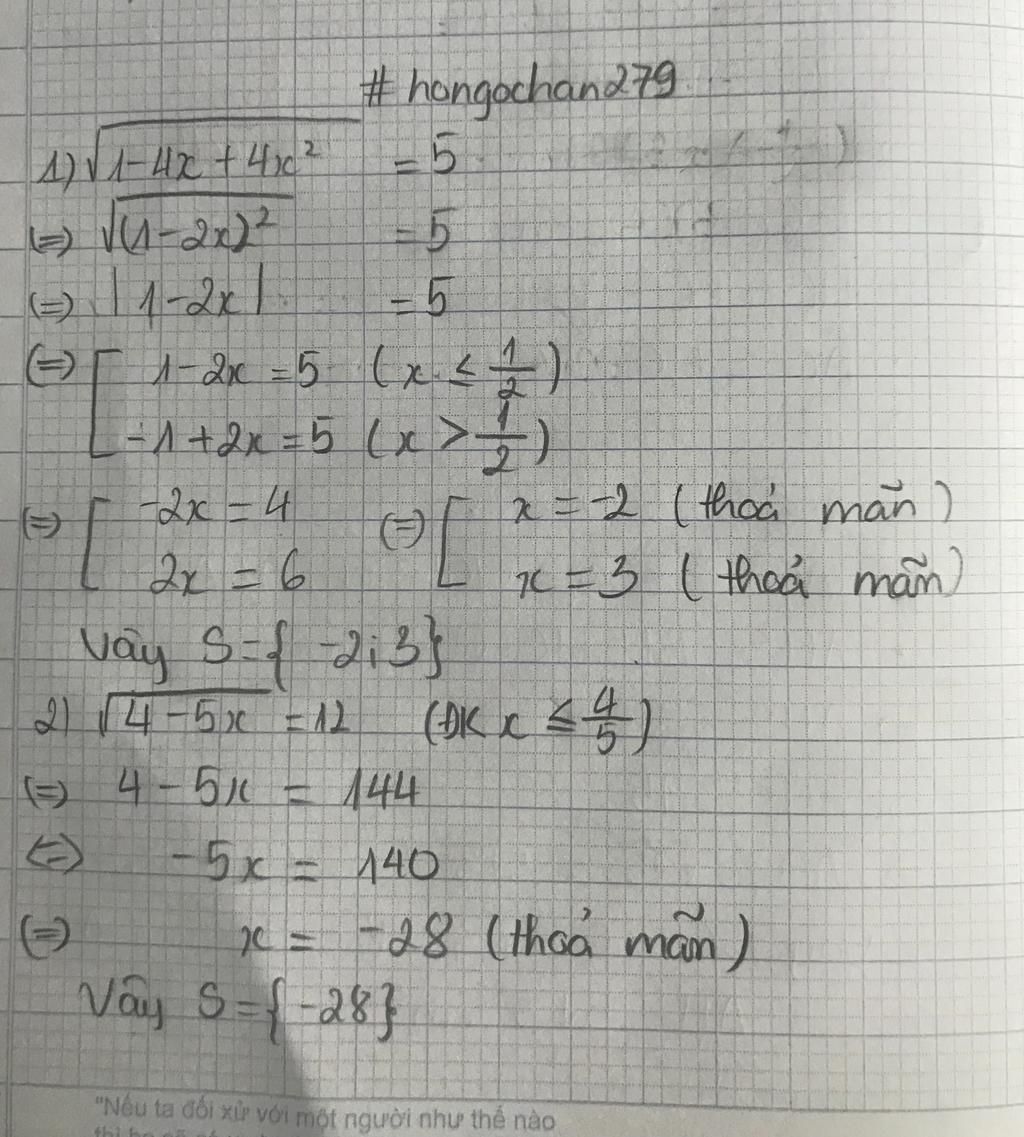 # hongochan279
1) √(1-4x+4x²) = 5
(=) √((1-2x)²) = 5
(=) |1-2x| = 5
(=) [ 1-2x = 5 (x ≤ 1/2)
-1+2x = 5 (x > 1/2)
(=) [ -2x = 4 (=) [ x = -2 (thoả mãn)
2x = 6 x = 3 (thoả mãn)
Vậy S={ -2;3}
2) √(4-5x) = 12 (ĐK x ≤ 4/5)
(=) 4-5x = 144
<=> -5x = 140
(=) x = -28 (thoả mãn)
Vậy S={-28}
"Nếu ta đối xử với một người như thế nào